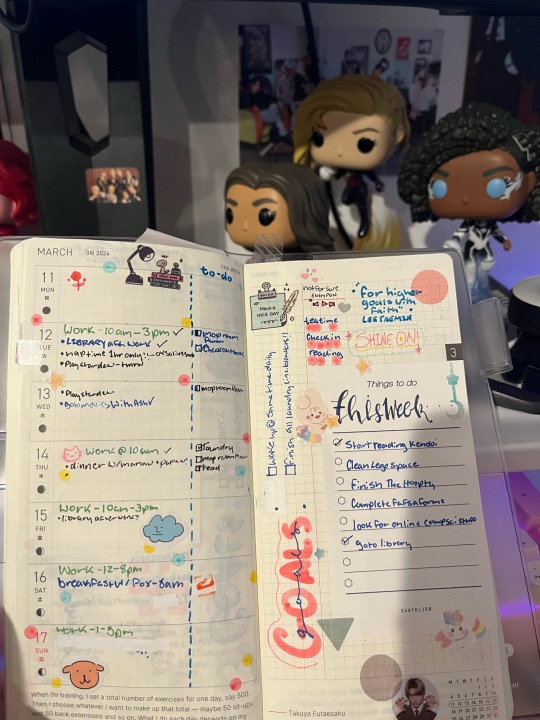 MARCH 3月 2024
to-do
11
MON
12
TUE
Work - 10am - 3pm ✓
• LIBRARY after work ✓
• nap time 1hr only
• Play stardew - hmm
mop room
Check out book
13
WED
• Play stardew
mop room
14
THU
Work @ 10am ✓
• dinner w/ mamaw +
laundry
mop room
read
15
FRI
Work - 10am - 3pm
• library after work?
16
SAT
Work - 12 - 8pm
breakfast w/ Fox - 8am
17
SUN
Work - 1 - 5pm
When I'm training, I set a total number of exercises for one day, say 500.
Then I choose whatever I want to make up that total — maybe 50 sit-ups
and 50 back extensions and so on. What I do each day depends on my
Have a
NICE DAY
not for sale
teatime
Check in
reading
"for higher
goals with
faith"
LEE TAEMIN
SHINE ON!
3
wake up @ same time daily
finish all laundry inc. blankets!
Goals
goals
Things to do
this week
Start reading Kendoi
Clean Lego space
Finish The Honpty
Complete Fafsa Forms
look for online compsci stuff
go to library
SUATELIER
— Takuya Futaesaku
M T W T F S S